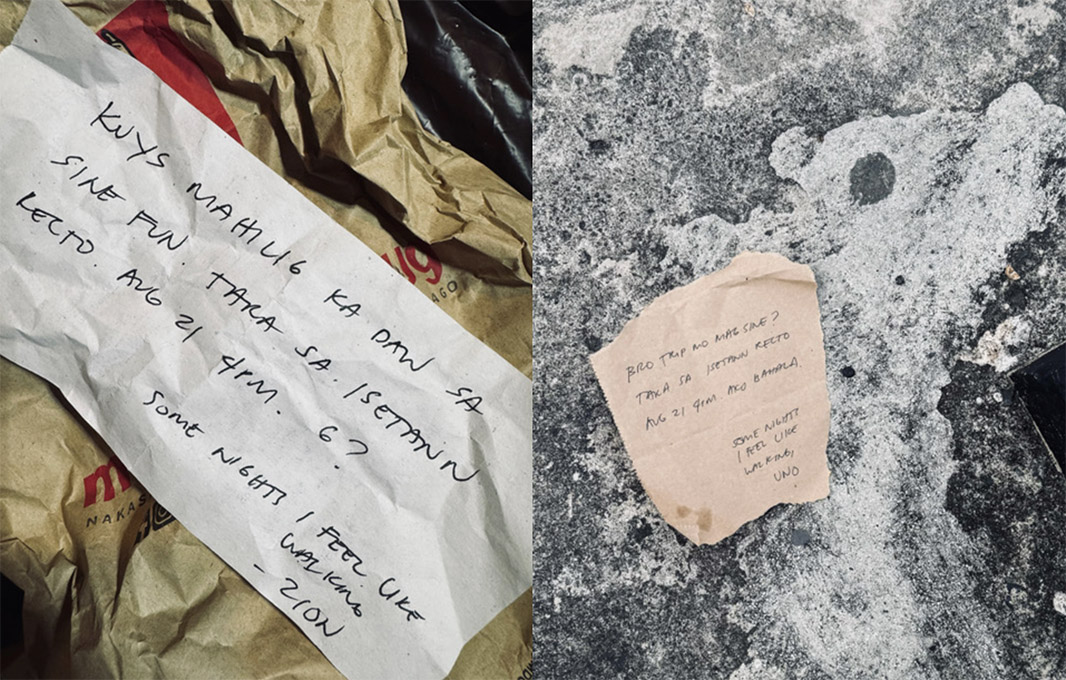 KUYS MAHILIG KA DAW SA
SINE FUN. TARA SA. ISETANN
RECTO. AUG 21 4PM. G?
SOME NIGHTS I FEEL LIKE
WALKING
- ZION
BRO TRIP MO MAG SINE?
TARA SA ISETANN RECTO
AUG 21 4PM. AKO BAHALA.
SOME NIGHTS
I FEEL LIKE
WALKING,
UNO